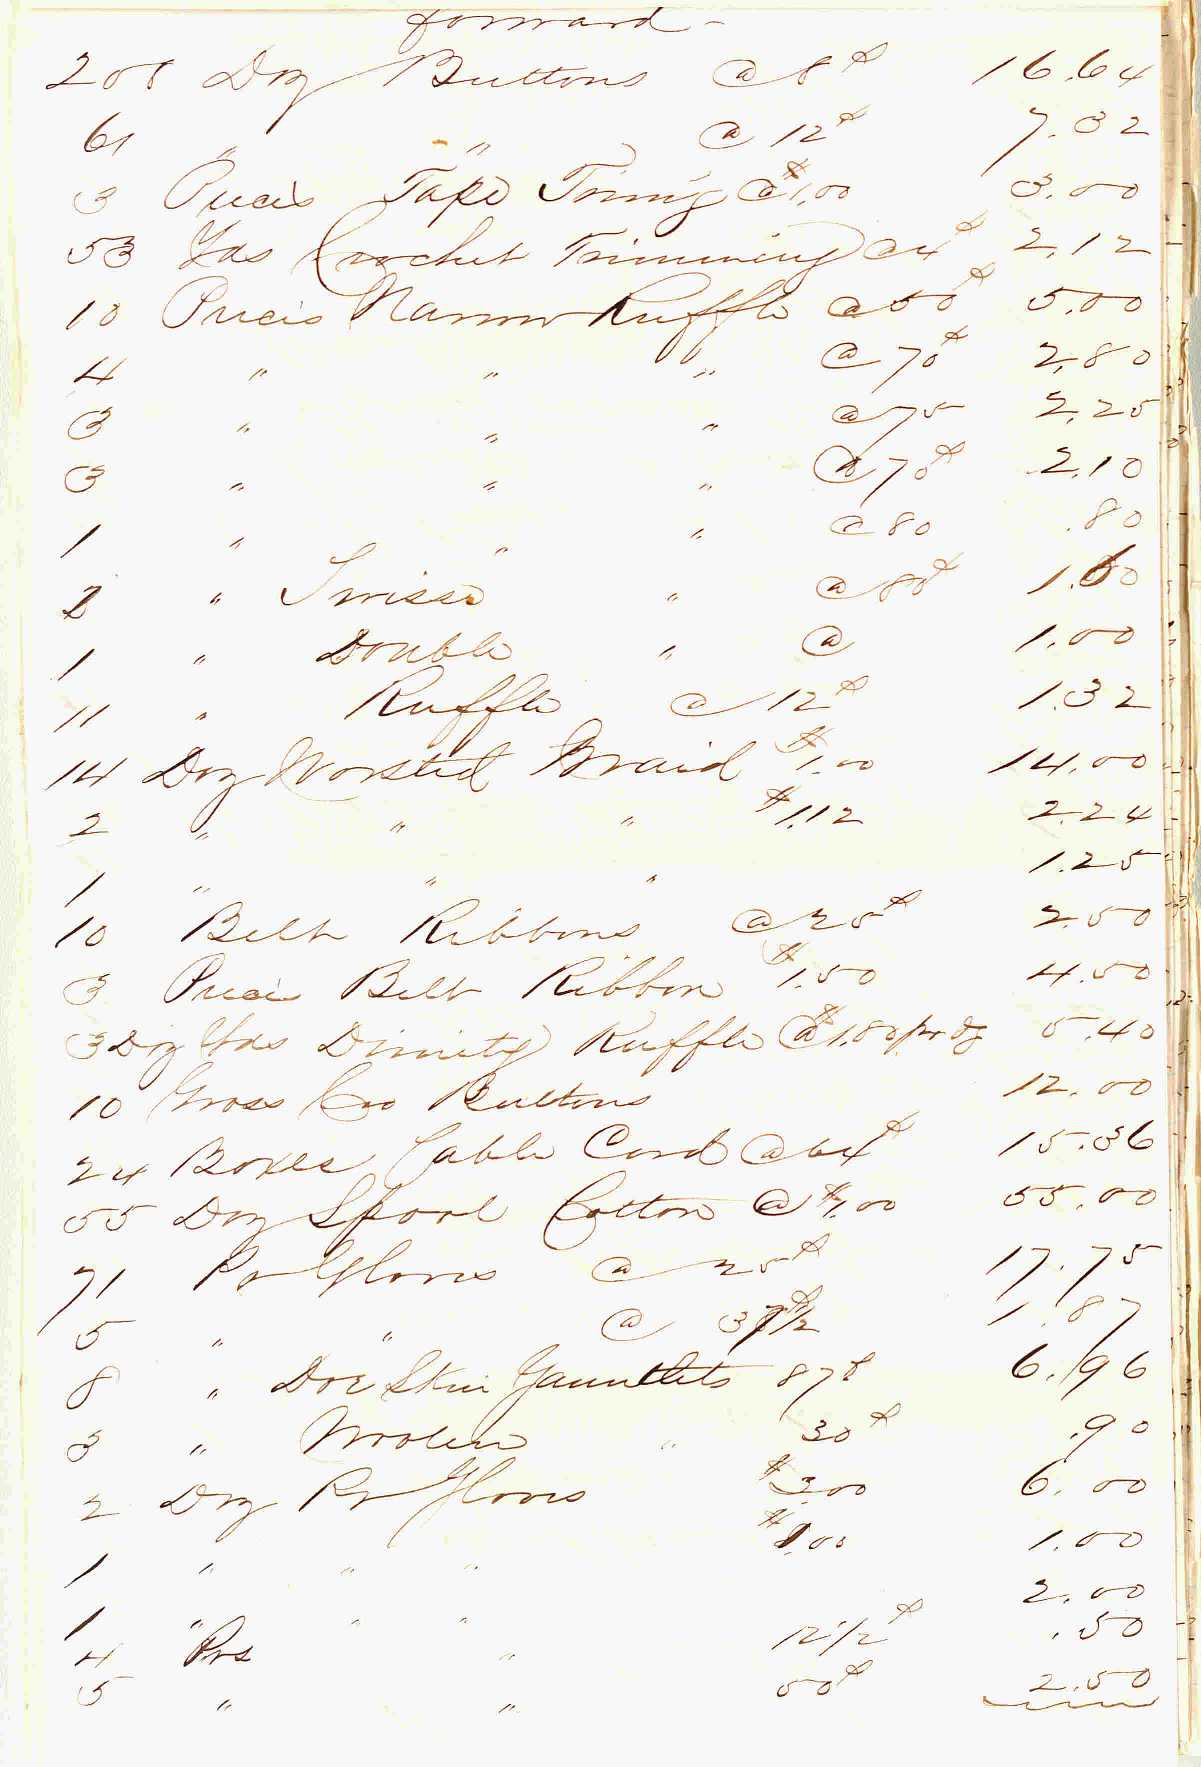 forward -
208 Doz Buttons @ 8¢ 16.64
61 " " @ 12¢ 7.32
3 Pieces Tape Trimg @ $1.00 3.00
53 Yds Crochet Trimming @ 4¢ 2.12
10 Pieces Narrow Ruffle @ 50¢ 5.00
4 " " " @ 70¢ 2.80
3 " " " @ 75 2.25
3 " " " @ 70¢ 2.10
1 " " " @ 80 .80
2 " Swisse " @ 80¢ 1.60
1 " Double " @ 1.00
11 " Ruffle @ 12¢ 1.32
14 Doz Worsted Braid $1.00 14.00
2 " " " $1.12 2.24
1 " " " 1.25
10 Belt Ribbons @ 25¢ 2.50
3 Piece Belt Ribbon $1.50 4.50
3 Doz Yds Dimity Ruffle @ $1.80 pr dz 5.40
10 Gross Buttons 12.00
24 Boxes Cable Cord @ 64¢ 15.36
55 Doz Spool Cotton @ $1.00 55.00
71 Pr Gloves @ 25¢ 17.75
5 " " @ 37½ 1.87
8 " Doe Skin Gauntlets 87¢ 6.96
3 " Woolen " 30¢ .90
2 Doz Pr Gloves $3.00 6.00
1 " " " $1.00 1.00
1 " " " 2.00
4 Prs " 12½¢ .50
5 " " 50¢ 2.50